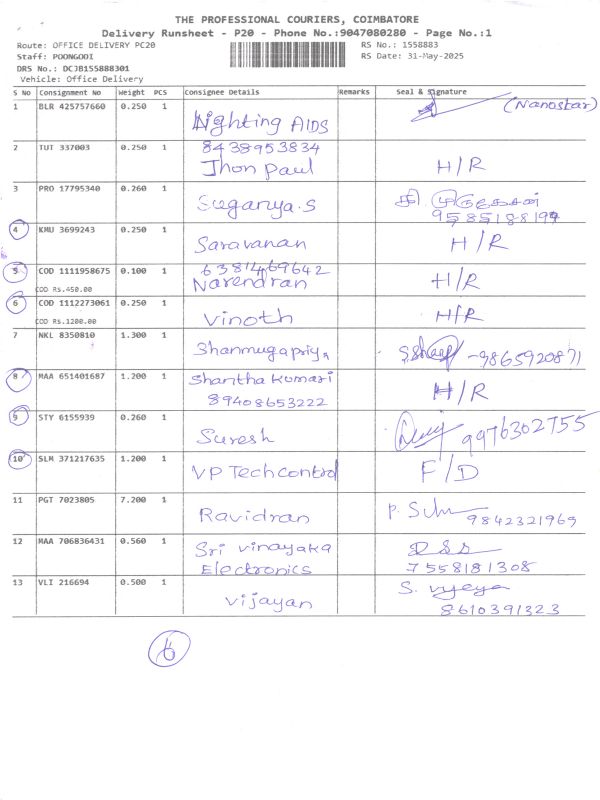 THE PROFESSIONAL COURIERS, COIMBATORE
Delivery Runsheet - P20 - Phone No.:9047080280 - Page No.:1
Route: OFFICE DELIVERY PC20 RS No.: 1558883
Staff: POONGODI RS Date: 31-May-2025
DRS No.: DCJB155888301
Vehicle: Office Delivery
S No Consignment No Weight PCS Consignee Details Remarks Seal & Signature
1 BLR 425757660 0.250 1 Lighting AIDS (Nanostar)
2 TUT 337003 0.250 1 8438953834
Jhon paul H/R
3 PRO 17795340 0.260 1 Suganya.S தி. முருகேசன்
4 KMU 3699243 0.250 1 Saravanan H/R
5 COD 1111958675 0.100 1 6381469642
COD Rs.450.00 Narendran H/R
6 COD 1112273061 0.250 1 Vinoth H/R
COD Rs.1200.00
7 NKL 8350810 1.300 1 Shanmugapriya -9865920871
8 MAA 651401687 1.200 1 Shantha kumari H/R
89408653222
9 STY 6155939 0.260 1 Suresh 9976302755
10 SLM 371217635 1.200 1 VP Techcontrol F/D
11 PGT 7023805 7.200 1 Ravidran 9842321969
12 MAA 706836431 0.560 1 Sri vinayaka
Electronics 7558181308
13 VLI 216694 0.500 1 vijayan S. 
8610391323
6